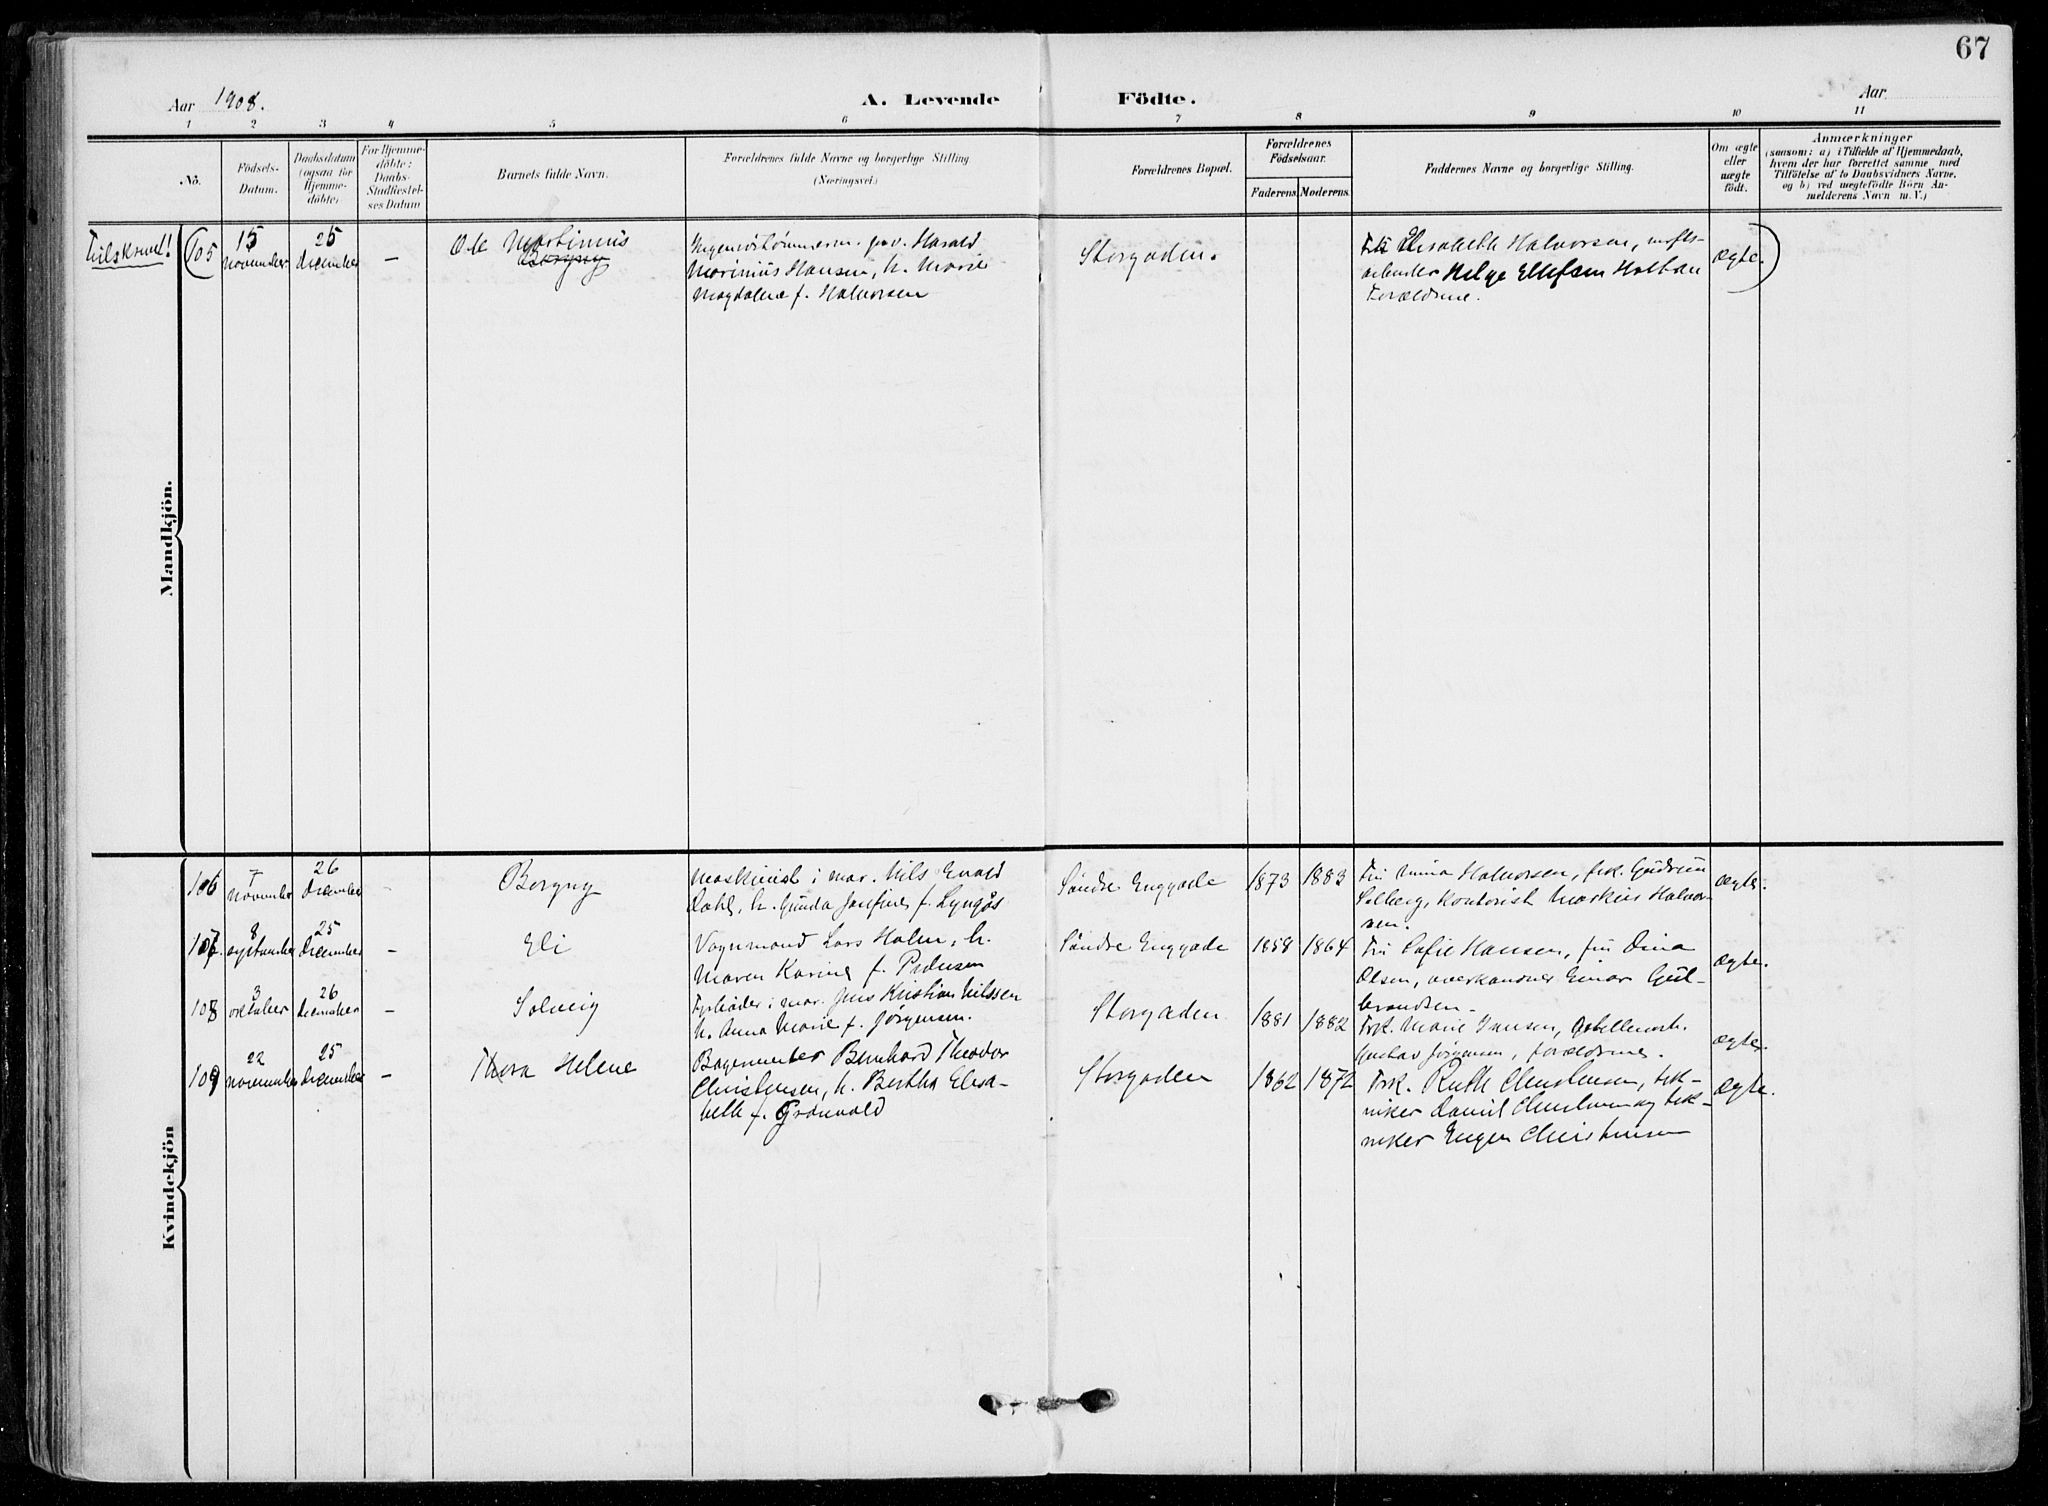 67
Aar 1908.
A. Levende Födte.
Aar
1 2 3 4 5 6 7 8 9 10 11
No.
Födsels-
Datum.
Daabsdatum
(ogsaa for
Hjemme-
döbte)
For Hjemme-
döbte:
Daabs-
Stadfæstel-
ses Datum
Barnets fulde Navn.
Forældrenes fulde Navne og borgerlige Stilling
(Næringsvei.)
Forældrenes Bopæl.
Forældrenes
Födselsaar.
Faderens. Moderens.
Faddernes Navne og borgerlige Stilling.
Om ægte
eller
uægte
födt.
Anmærkninger
(saasom: a) i Tilfælde af Hjemmedaab,
hvem der har forrettet samme med
Tilföielse af to Daabsvidners Navne,
og b) ved uægtefödte Börn An-
melderens Navn m. V.)
Mandkjön.
Tilskrevet!
(105
15
november
25
december
—
Ole Martinius
Borgny
Harald
Marinius Hansen, h. Marie
Magdalene f. Halvorsen
Storgaden.
Elisabeth Halvorsen,
arbeider Helge Ellefsen
Forældrene.
Ægte.)
Kvindekjön
106
7
november
26
december
-
Borgny
Maskinist i mar. Nils Evald
Dahl, h. Gunda Josefine f. Lyngås
Søndre Enggade
1873
1883
Fru Minna Halvorsen, frk. Gudrun
Solberg, kontorist Markus Halvor-
sen.
Ægte.
107.
8
september
25
december
-
Eli
Vognmand Lars Holm, h.
Maren Karine f. Pedersen
Søndre Enggade
1858
1864
Fru Sofie Hansen, fru Dina
Olsen, overkanoner Einar Gul-
brandsen.
Ægte.
108
3
oktober
26
december
-
Solveig
Fyrbøder i mar. Jens Kristian Nilssen
h. Anna Marie f. Jørgensen.
Storgaden
1881
1882
Frk. Marie Jensen,
Gustav Jørgensen, forældrene.
Ægte.
109
22
november
25
december
-
Thora Helene
Bagermester Bernhard Theodor
Christensen, h. Bertha Elisa-
beth f. Grønvold
Storgaden
1862
1872
Frk. Ruth Christensen, tek-
niker Daniel Christensen og tek-
niker Eugen Christensen
Ægte.